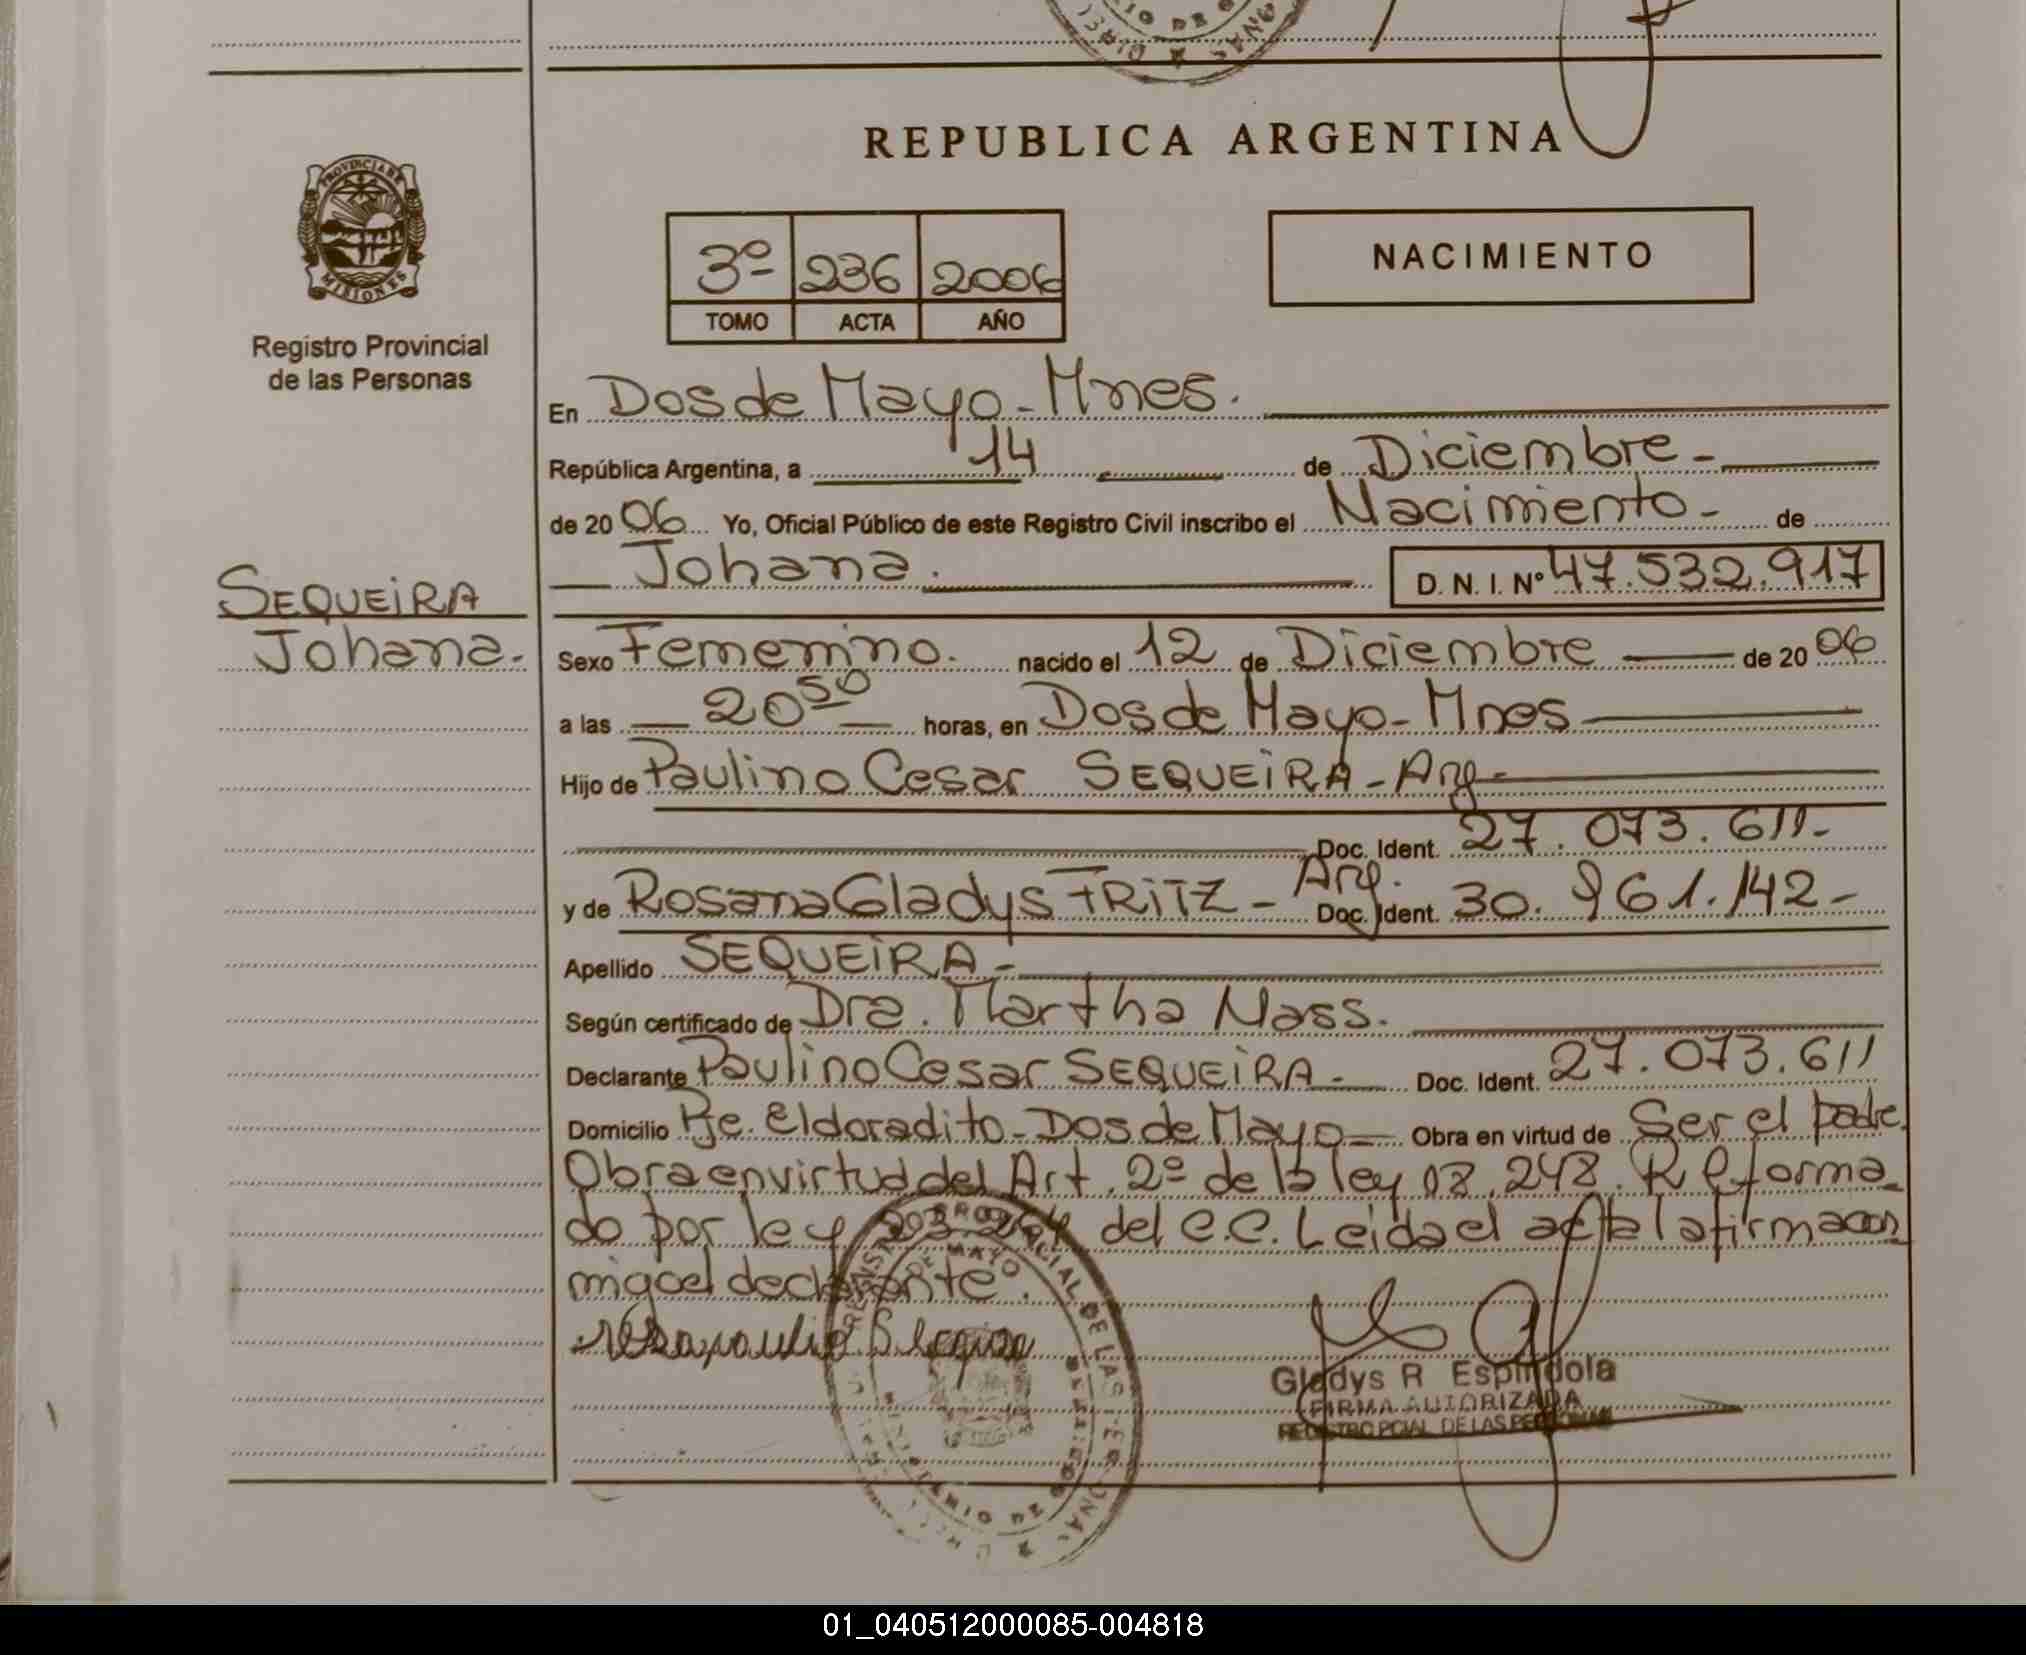 REPUBLICA ARGENTINA
PROVINCIA DE
MISIONES
Registro Provincial
de las Personas
3º 236 2006
TOMO ACTA AÑO
NACIMIENTO
En Dos de Mayo - Mnes.
República Argentina, a 14 de Diciembre -
de 2006 Yo, Oficial Público de este Registro Civil inscribo el Nacimiento - de
Johana. D. N. I. Nº 47.532.917
SEQUEIRA
Johana.-
Sexo Femenino. nacido el 12 de Diciembre de 2006
a las 20 50 horas, en Dos de Mayo - Mnes
Hijo de Paulino Cesar SEQUEIRA - Arg -
Doc. Ident. 27.073.611-
y de Rosana Gladys FRITZ - Arg. Doc. Ident. 30.961.142-
Apellido SEQUEIRA -
Según certificado de Dra. Martha Nass.
Declarante Paulino Cesar SEQUEIRA - Doc. Ident. 27.073.611
Domicilio Pje. Eldoradito - Dos de Mayo - Obra en virtud de Ser el padre.
Obra en virtud del Art. 2º de la ley 18.248. Reforma-
do por ley del C.C. Leida el acta la firma con
migo el declarante.
Gladys R Espindola
FIRMA AUTORIZADA
REGISTRO PCIAL DE LAS PERSONAS
01_040512000085-004818